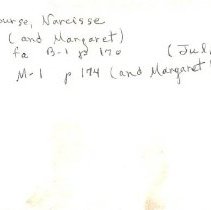 ourse, Narcisse
(and Margaret)
fa B-1 p 170 (Jul
M-1 p 174 (and Margaret